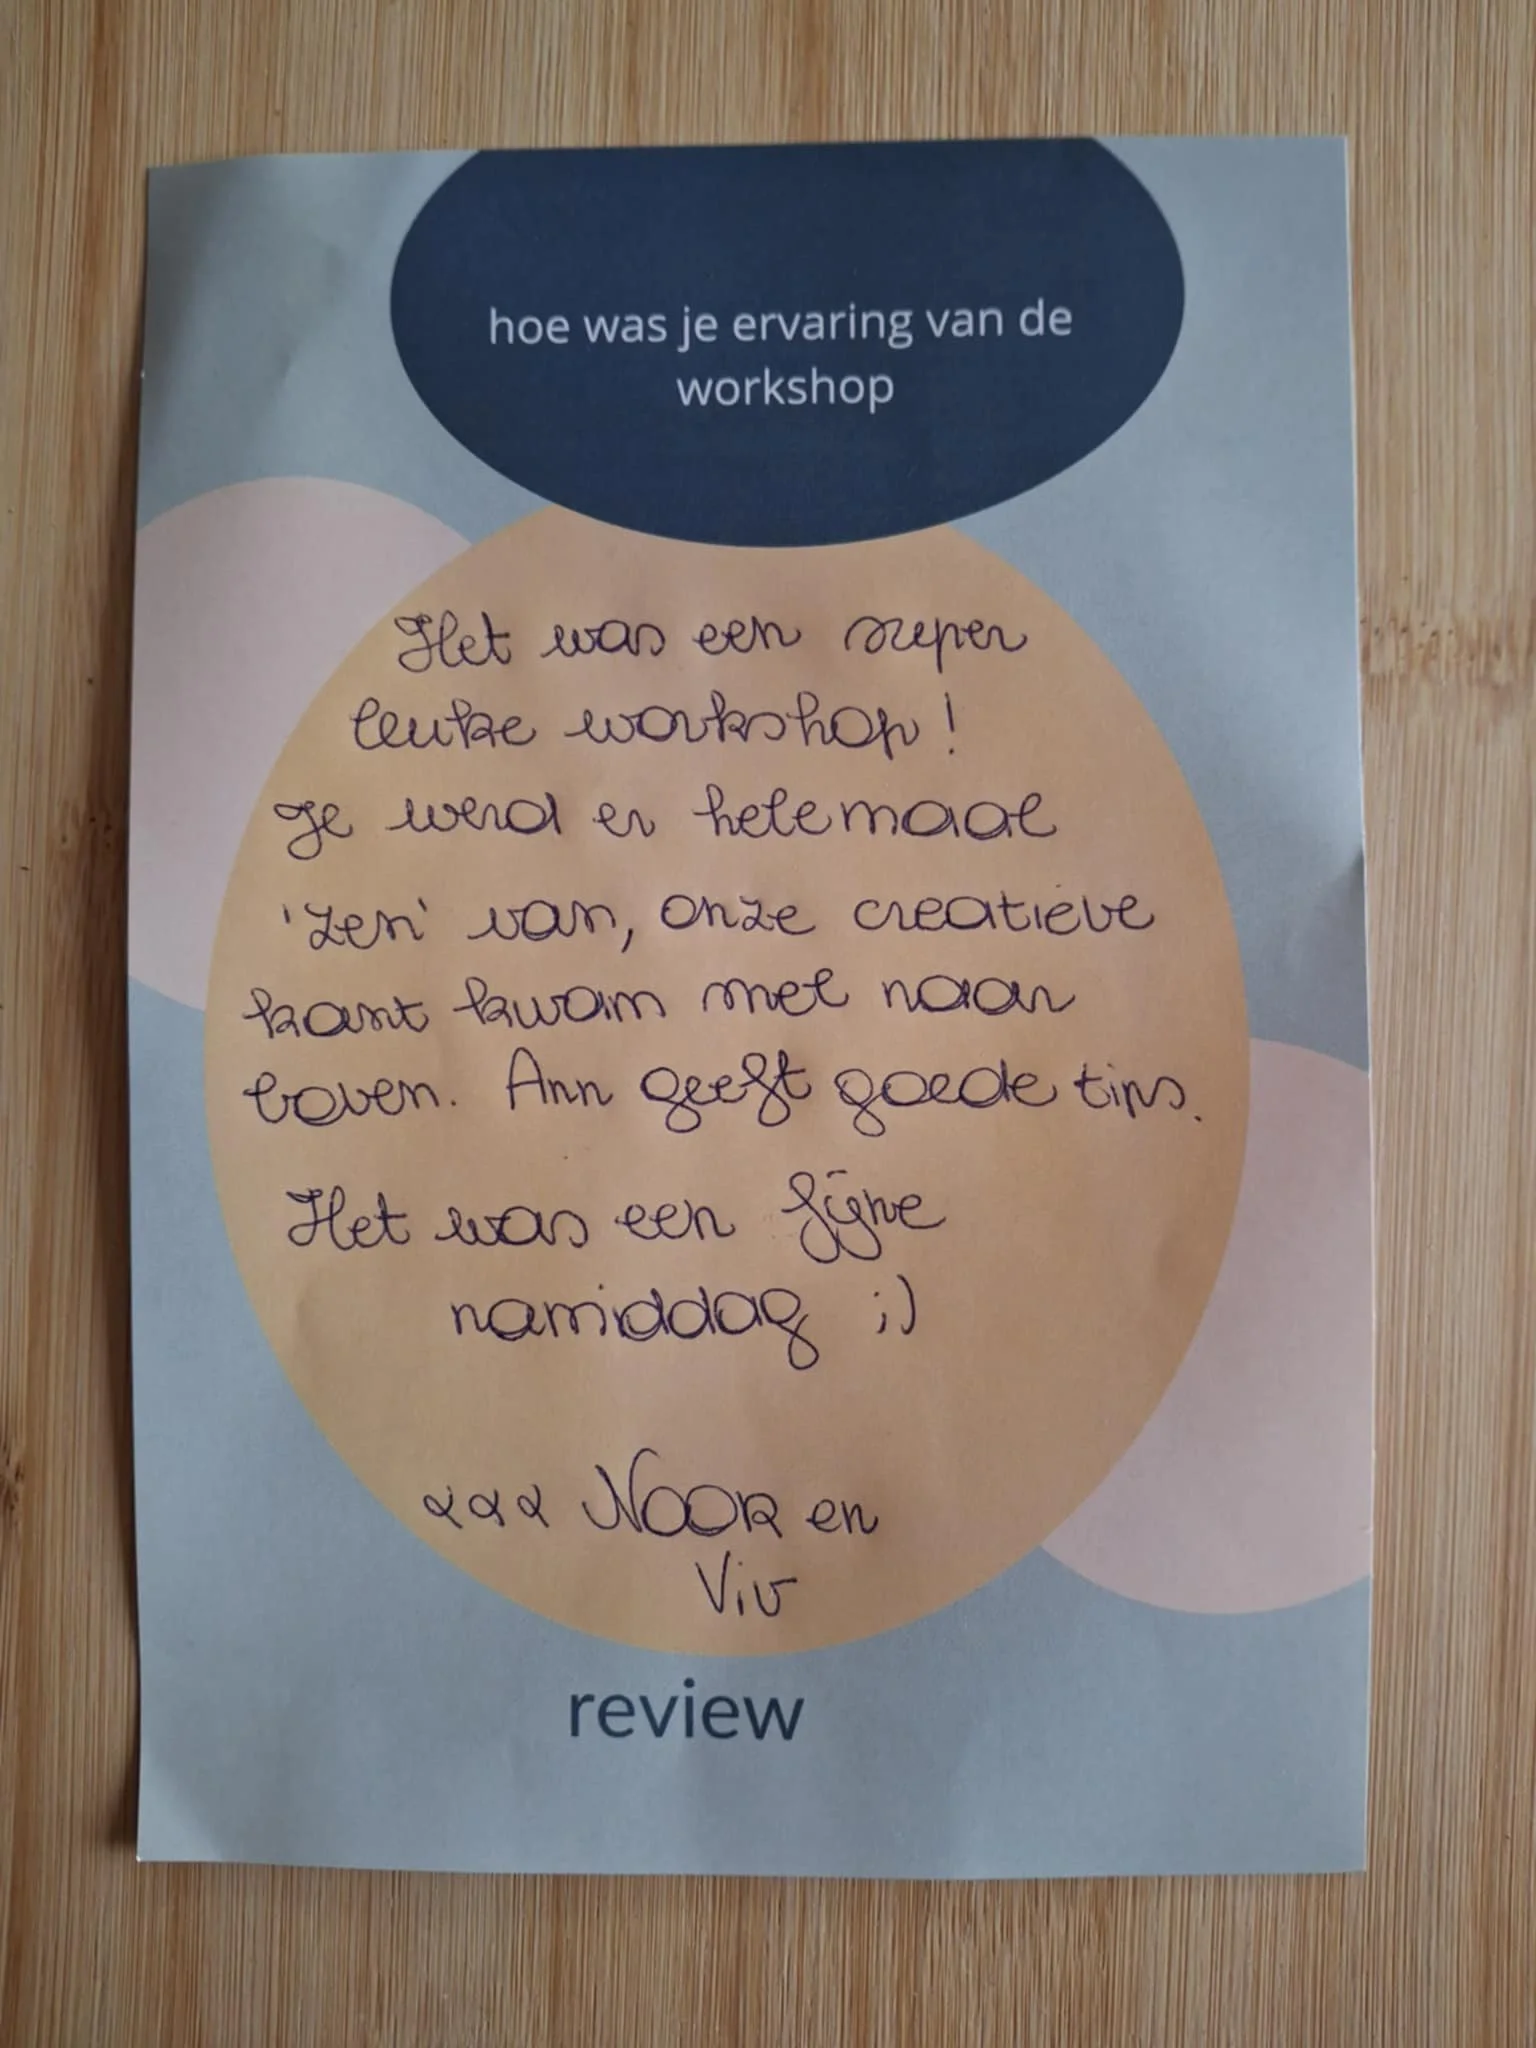 hoe was je ervaring van de
workshop
Het was een super
leuke workshop!
Je werd er helemaal
'zen' van, onze creatieve
kant kwam mee naar
boven. Ann geeft goede tips.
Het was een fijne
namiddag ;)
xxx Noor en
Viv
review